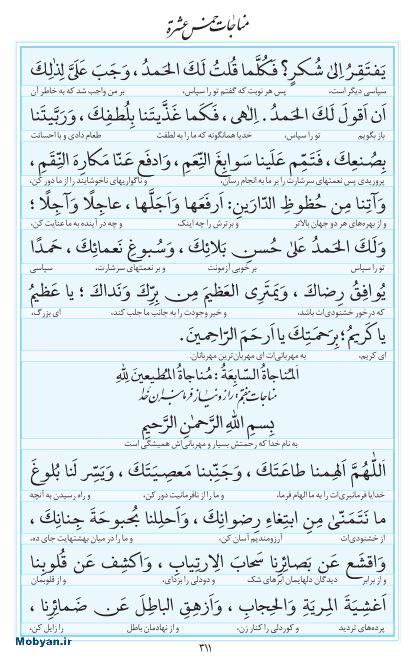 مناجات خمس عشرة
یَفتَقِرُ اِلیٰ شُکرٍ؟ فَکُلَّما قُلتُ لَکَ الحَمدُ ، وَجَبَ عَلَیَّ لِذٰلِکَ
سپاسی دیگر است، پس هر نوبت که گفتم تو را سپاس، بر من واجب شد که به خاطر آن
اَن اَقولَ لَکَ الحَمدُ . اِلٰهی ، فَکَما غَذَّیتَنا بِلُطفِکَ ، وَرَبَّیتَنا
باز بگویم تو را سپاس، خدایا همانگونه که ما را به لطفت طعام دادی و با احسانت
بِصُنعِکَ ، فَتَمِّم عَلَینا سَوابِغَ النِّعَمِ ، وَادفَع عَنّا مَکارِهَ النِّقَمِ ،
پروریدی پس نعمتهای سرشارت را بر ما به انجام رسان، و ناگواریهای ناخوشایند را از ما دور کن،
وَآتِنا مِن حُظوظِ الدّارَینِ: اَرفَعَها وَاَجَلَّها ، عاجِلًا وَآجِلًا ؛
و از بهره‌های هر دو جهان بالاتر و برترش را چه اینک و چه در آینده به ما عنایت کن،
وَلَکَ الحَمدُ عَلیٰ حُسنِ بَلائِکَ ، وَسُبوغِ نَعمائِکَ ، حَمدًا
تو را سپاس بر خوبی آزمونت و بر نعمتهای سرشارت، سپاسی
یُوافِقُ رِضاکَ ، وَیَمتَرِی العَظیمَ مِن بِرِّکَ وَنَداکَ ؛ یا عَظیمُ
که درخور خشنودی‌ات باشد، و خیر وجودت را به جانب ما جلب کند، ای بزرگ،
یا کَریمُ ؛ بِرَحمَتِکَ یا اَرحَمَ الرّاحِمینَ.
ای کریم، به مهربانی‌ات ای مهربان‌ترین مهربانان.
اَلمُناجاةُ السّابِعَةُ : مُناجاةُ المُطیعینَ لِلّٰهِ
مناجات هفتم: راز و نیاز فرمانبران خدا
بِسمِ اللهِ الرَّحمٰنِ الرَّحیمِ
به نام خدا که رحمتش بسیار و مهربانی‌اش همیشگی است
اَللّٰهُمَّ اَلهِمنا طاعَتَکَ ، وَجَنِّبنا مَعصِیَتَکَ ، وَیَسِّر لَنا بُلوغَ
خدایا فرمانبری‌ات را به ما الهام فرما، و ما را از نافرمانیت دور کن، و راه رسیدن به آنچه
ما نَتَمَنّیٰ مِنِ ابتِغاءِ رِضوانِکَ ، وَاَحلِلنا بُحبوحَةَ جِنانِکَ ،
از خشنودی‌ات آرزومندیم آسان کن، و ما را در میان بهشتهایت جای ده،
وَاقشَع عَن بَصائِرِنا سَحابَ الاِرتِیابِ ، وَاکشِف عَن قُلوبِنا
و از برابر دیدگان دلهایمان ابرهای شک و دودلی را بزدای، و از قلوبمان
اَغشِیَةَ المِریَةِ وَالحِجابِ ، وَاَزهِقِ الباطِلَ عَن ضَمائِرِنا ،
پرده‌های تردید و کوردلی را کنار زن، و از نهادمان باطل را زایل کن،
۳۱۱
Mobyan.ir